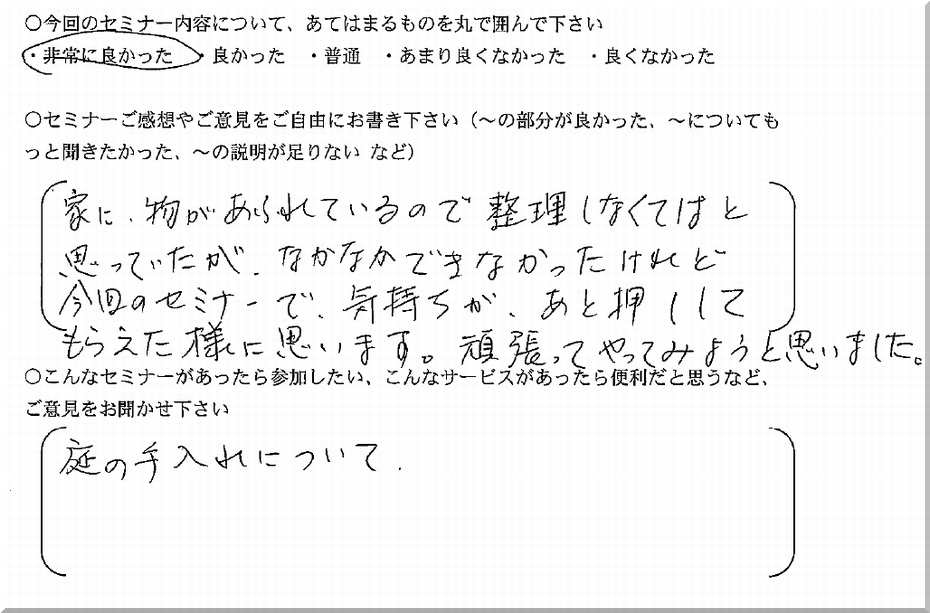 ○今回のセミナー内容について、あてはまるものを丸で囲んで下さい
・非常に良かった　・良かった　・普通　・あまり良くなかった　・良くなかった
○セミナーご感想やご意見をご自由にお書き下さい（～の部分が良かった、～についても
っと聞きたかった、～の説明が足りない など）
家に、物があふれているので整理しなくてはと
思っていたが、なかなかできなかったけれど
今回のセミナーで、気持ちが、あと押しして
もらえた様に思います。頑張ってやってみようと思いました。
○こんなセミナーがあったら参加したい、こんなサービスがあったら便利だと思うなど、
ご意見をお聞かせ下さい
庭の手入れについて.